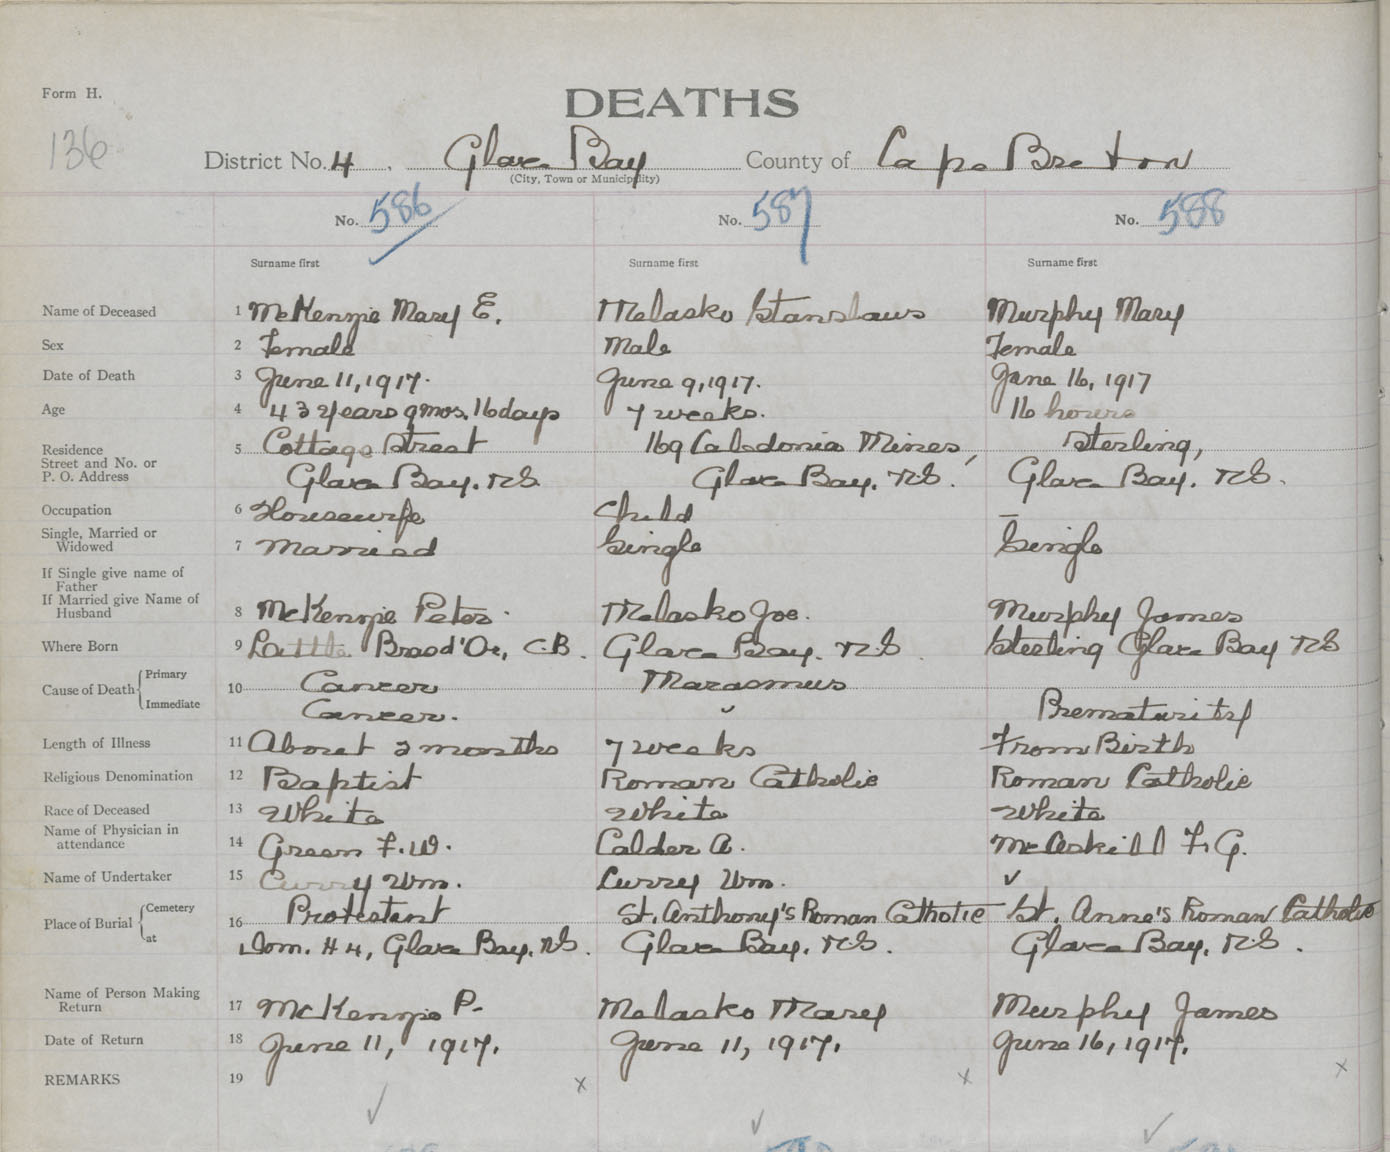 Form H.
DEATHS
136
District No. 4, Glace Bay County of Cape Breton
(City, Town or Municipality)
No. 586 No. 587 No. 588
Surname first Surname first Surname first
Name of Deceased 1 McKenzie Mary E. Melasko Stanslaus Murphy Mary
Sex 2 Female Male Female
Date of Death 3 June 11, 1917. June 9, 1917. June 16, 1917
Age 4 43 years 9 mos. 16 days 7 weeks. 16 hours
Residence 5 Cottage Street 169 Caledonia Mines, Sterling,
Street and No. or
P. O. Address Glace Bay. N.S. Glace Bay. N.S. Glace Bay. N.S.
Occupation 6 Housewife Child —
Single, Married or
Widowed 7 Married Single Single
If Single give name of
Father
If Married give Name of
Husband 8 McKenzie Peter. Melasko Joe. Murphy James
Where Born 9 Little Brasd'Or, C.B. Glace Bay. N.S. Sterling Glace Bay N.S
Cause of Death Primary 10 Cancer Marasmus
Immediate Cancer. ✓ Prematurity
Length of Illness 11 About 2 months 7 weeks From Birth
Religious Denomination 12 Baptist Roman Catholic Roman Catholic
Race of Deceased 13 White White White
Name of Physician in
attendance 14 Green F. W. Calder A. McAskill F. G.
Name of Undertaker 15 Curry Wm. Currey Wm. ✓
Place of Burial Cemetery 16 Protestant St. Anthony's Roman Catholic St. Anne's Roman Catholic
at Dom. #4, Glace Bay. N.S. Glace Bay. N.S. Glace Bay. N.S.
Name of Person Making
Return 17 McKenzie P. Melasko Mary Murphy James
Date of Return 18 June 11, 1917. June 11, 1917. June 16, 1917.
REMARKS 19 x x x
✓ ✓ ✓